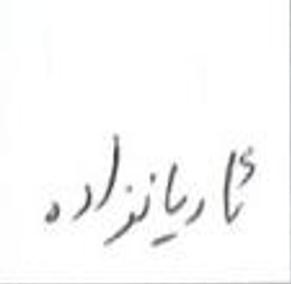 ئاریانزاده